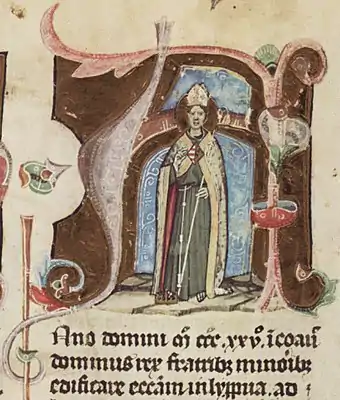 Ano domini m̄ ccc xxv͛. īcoaū
dominus rex fratribȝ minoribȝ
edificare ecc̄am in lyppua. ad